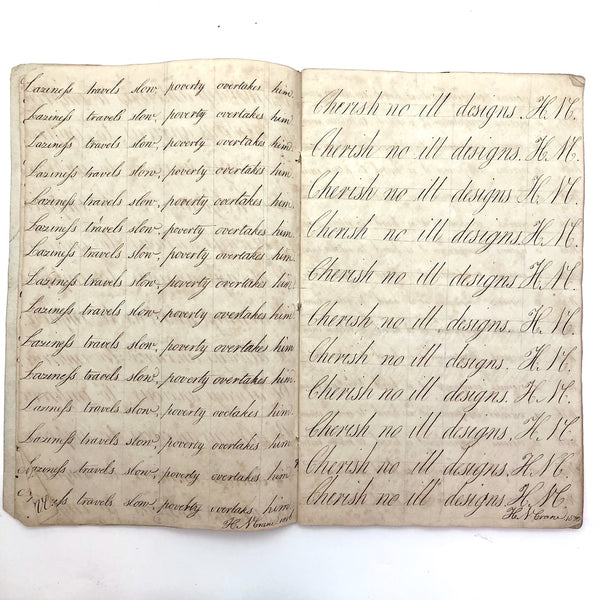 Lazineſs travels slow, poverty overtakes him.
Lazineſs travels slow, poverty overtakes him.
Lazineſs travels slow, poverty overtakes him.
Lazineſs travels slow, poverty overtakes him.
Lazineſs travels slow, poverty overtakes him.
Lazineſs travels slow, poverty overtakes him.
Lazineſs travels slow, poverty overtakes him.
Lazineſs travels slow, poverty overtakes him.
Lazineſs travels slow, poverty overtakes him.
Lazineſs travels slow, poverty overtakes him.
Lazineſs travels slow, poverty overtakes him.
Lazineſs travels slow, poverty overtakes him.
Lazineſs travels slow, poverty overtakes him.
Lazineſs travels slow, poverty overtakes him.
travels slow, poverty overtakes him
H. N Crane
Cherish no ill designs. H. N.
Cherish no ill designs. H. N.
Cherish no ill designs. H. N.
Cherish no ill designs. H. N.
Cherish no ill designs. H. N.
Cherish no ill designs. H. N.
Cherish no ill designs. H. N.
Cherish no ill designs. H. N.
Cherish no ill designs. H. N.
Cherish no ill designs. H. N.
Cherish no ill designs. H. N.
H. N Crane